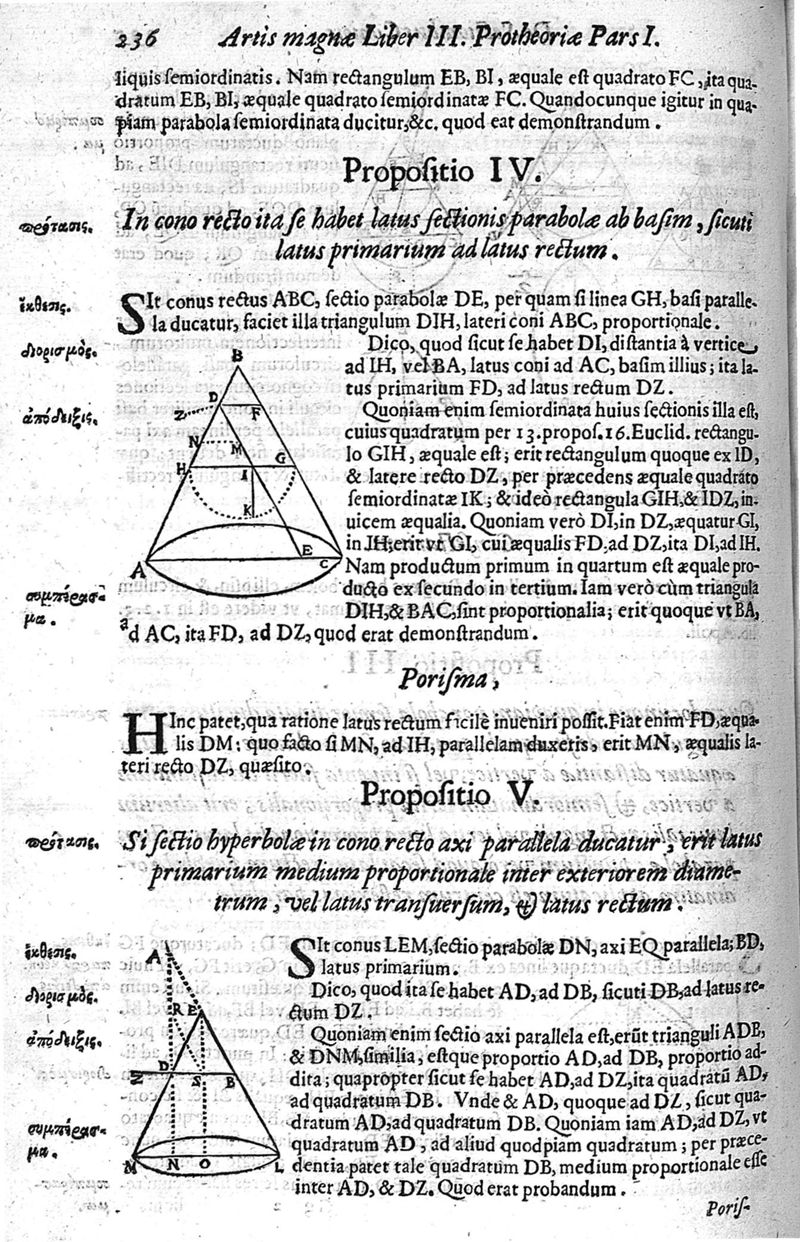 236 Artis magnæ Liber III. Protheoriæ Pars I.
liquis ſemiordinatis. Nam rectangulum EB, BI, æquale eſt quadrato FC, ita qua-
dratum EB, BI, æquale quadrato ſemiordinatæ FC. Quandocunque igitur in qua-
piam parabola ſemiordinata ducitur, &c. quod eat demonſtrandum.
Propoſitio IV.
πρότασις.
In cono recto ita ſe habet latus ſectionis parabolæ ab baſim, ſicuti
latus primarium ad latus rectum.
ἔκθεσις.
SIt conus rectus ABC, ſectio parabolæ DE, per quam ſi linea GH, baſi paralle-
la ducatur, faciet illa triangulum DIH, lateri coni ABC, proportionale.
διορισμὸς.
Dico, quod ſicut ſe habet DI, diſtantia à vertice
ad IH, vel BA, latus coni ad AC, baſim illius; ita la-
tus primarium FD, ad latus rectum DZ.
ἀπόδειξις.
Quoniam enim ſemiordinata huius ſectionis illa eſt,
cuius quadratum per 13. propoſ. 16. Euclid. rectangu-
lo GIH, æquale eſt; erit rectangulum quoque ex ID,
& latere recto DZ, per præcedens æquale quadrato
ſemiordinatæ IK; & ideò rectangula GIH, & IDZ, in-
uicem æqualia. Quoniam verò DI, in DZ, æquatur GI,
in IH; erit vt GI, cui æqualis FD, ad DZ, ita DI, ad IH.
Nam productum primum in quartum eſt æquale pro-
συμπέρασ-
μα.
ducto ex ſecundo in tertium. Iam verò cùm triangula
DIH, & BAC, ſint proportionalia; erit quoque vt BA,
ad AC, ita FD, ad DZ, quod erat demonſtrandum.
B
D
F
Z
N
M
H
I
G
K
E
A
C
Poriſma,
HInc patet, qua ratione latus rectum facilè inueniri poſſit. Fiat enim FD, æqua-
lis DM: quo facto ſi MN, ad IH, parallelam duxeris, erit MN, æqualis la-
teri recto DZ, quæſito.
Propoſitio V.
πρότασις.
Si ſectio hyperbolæ in cono recto axi parallela ducatur, erit latus
primarium medium proportionale inter exteriorem diame-
trum, vel latus tranſuerſum, & latus rectum.
ἔκθεσις.
SIt conus LEM, ſectio parabolæ DN, axi EQ parallela; BD,
latus primarium.
διορισμὸς.
Dico, quod ita ſe habet AD, ad DB, ſicuti DB, ad latus re-
ctum DZ.
ἀπόδειξις.
Quoniam enim ſectio axi parallela eſt, erūt trianguli ADB,
& DNM, ſimilia; eſtque proportio AD, ad DB, proportio ad-
dita; quapropter ſicut ſe habet AD, ad DZ, ita quadratū AD,
ad quadratum DB. Vnde & AD, quoque ad DZ, ſicut qua-
dratum AD, ad quadratum DB. Quoniam iam AD, ad DZ, vt
συμπέρασ-
μα.
quadratum AD, ad aliud quodpiam quadratum; per præce-
dentia patet tale quadratum DB, medium proportionale eſſe
inter AD, & DZ. Quod erat probandum.
A
R
E
Z
D
S
B
M
N
O
L
Poriſ-